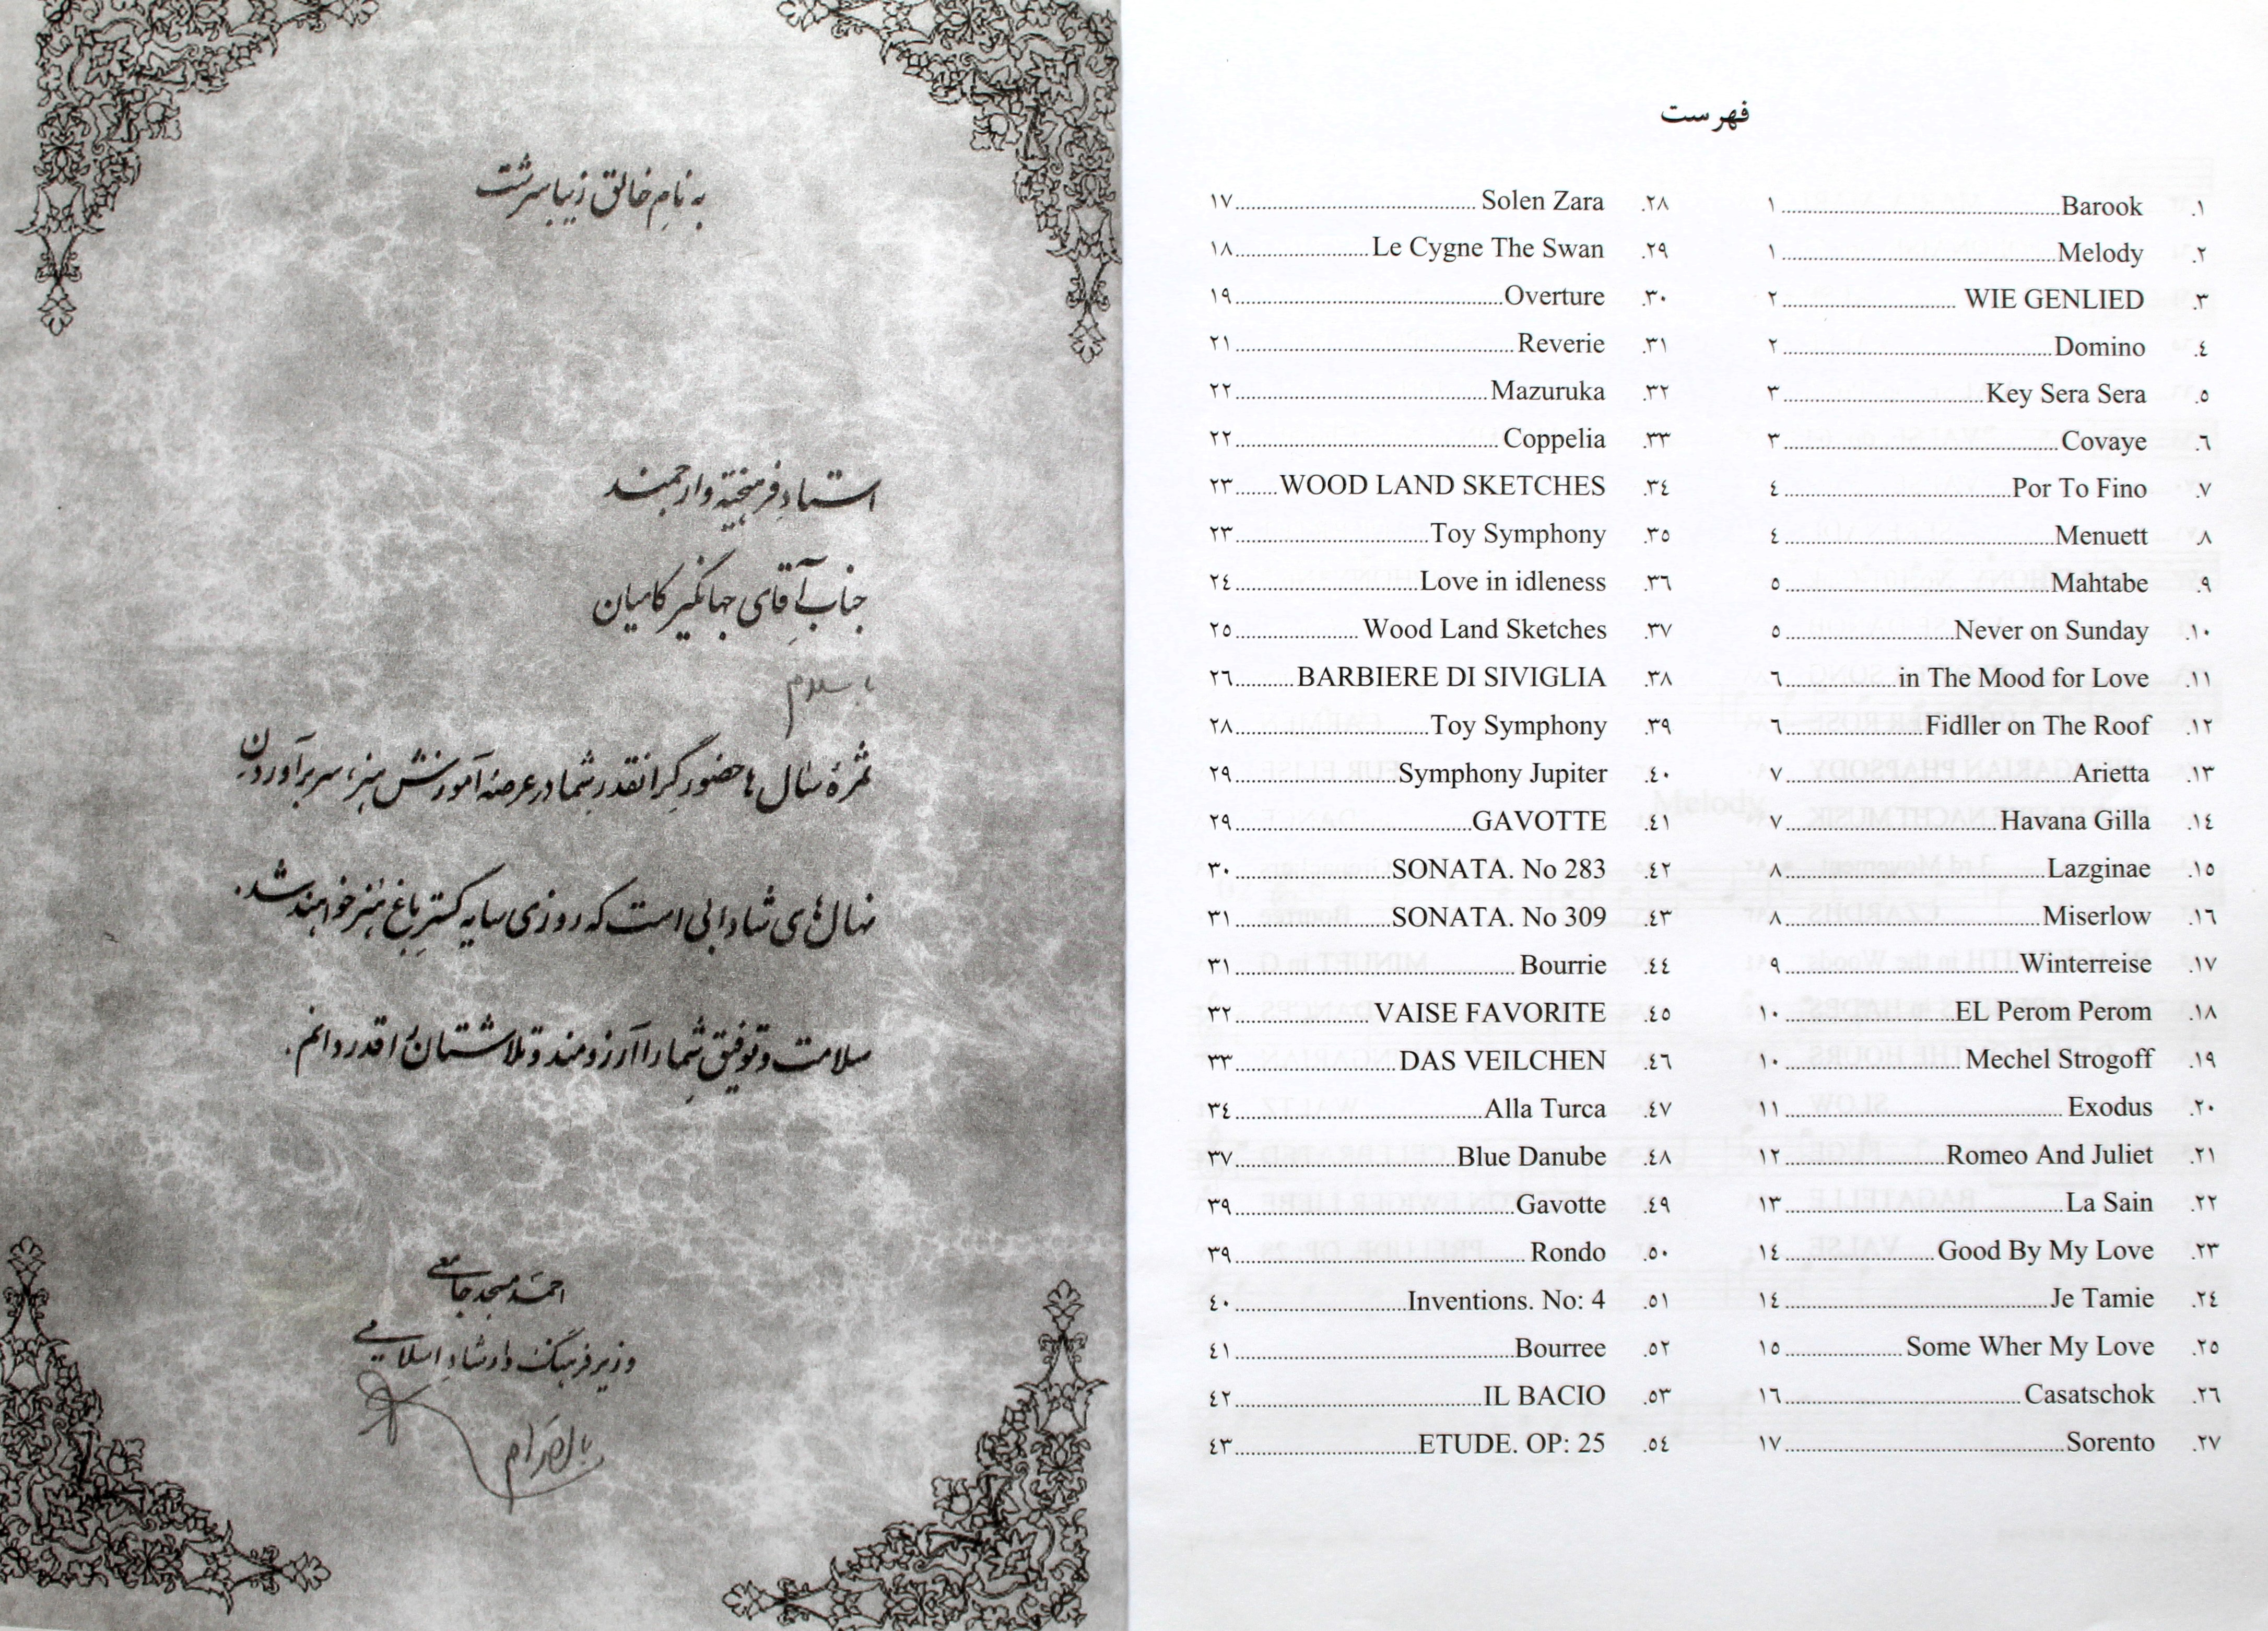 به نامِ خالق زیباسرشت
استادِ فرهیخته و ارجمند
جنابِ آقای جهانگیر کامیان
با سلام
ثمرهٔ سال ها حضورِ گرانقدر شما در عرصهٔ آموزش هنر، سر برآوردنِ
نهال های شادابی است که روزی سایه گسترِ باغ هنر خواهند شد.
سلامت و توفیقِ شما را آرزومند و تلاشتان را قدردانم.
احمد مسجدجامعی
وزیر فرهنگ و ارشادِ اسلامی
با احترام
فهرست
.۱ Barook ۱
.۲ Melody ۱
.۳ WIE GENLIED ۲
.٤ Domino ۲
.٥ Key Sera Sera ۳
.٦ Covaye ۳
.۷ Por To Fino ٤
.۸ Menuett ٤
.۹ Mahtabe ٥
.۱۰ Never on Sunday ٥
.۱۱ in The Mood for Love ٦
.۱۲ Fidller on The Roof ٦
.۱۳ Arietta ۷
.۱٤ Havana Gilla ۷
.۱٥ Lazginae ۸
.۱٦ Miserlow ۸
.۱۷ Winterreise ۹
.۱۸ EL Perom Perom ۱۰
.۱۹ Mechel Strogoff ۱۰
.۲۰ Exodus ۱۱
.۲۱ Romeo And Juliet ۱۲
.۲۲ La Sain ۱۳
.۲۳ Good By My Love ۱٤
.۲٤ Je Tamie ۱٤
.۲٥ Some Wher My Love ۱٥
.۲٦ Casatschok ۱٦
.۲۷ Sorento ۱۷
.۲۸ Solen Zara ۱۷
.۲۹ Le Cygne The Swan ۱۸
.۳۰ Overture ۱۹
.۳۱ Reverie ۲۱
.۳۲ Mazuruka ۲۲
.۳۳ Coppelia ۲۲
.۳٤ WOOD LAND SKETCHES ۲۳
.۳٥ Toy Symphony ۲۳
.۳٦ Love in idleness ۲٤
.۳۷ Wood Land Sketches ۲٥
.۳۸ BARBIERE DI SIVIGLIA ۲٦
.۳۹ Toy Symphony ۲۸
.٤۰ Symphony Jupiter ۲۹
.٤۱ GAVOTTE ۲۹
.٤۲ SONATA. No 283 ۳۰
.٤۳ SONATA. No 309 ۳۱
.٤٤ Bourrie ۳۱
.٤٥ VAISE FAVORITE ۳۲
.٤٦ DAS VEILCHEN ۳۳
.٤۷ Alla Turca ۳٤
.٤۸ Blue Danube ۳۷
.٤۹ Gavotte ۳۹
.٥۰ Rondo ۳۹
.٥۱ Inventions. No: 4 ٤۰
.٥۲ Bourree ٤۱
.٥۳ IL BACIO ٤۲
.٥٤ ETUDE. OP: 25 ٤۳